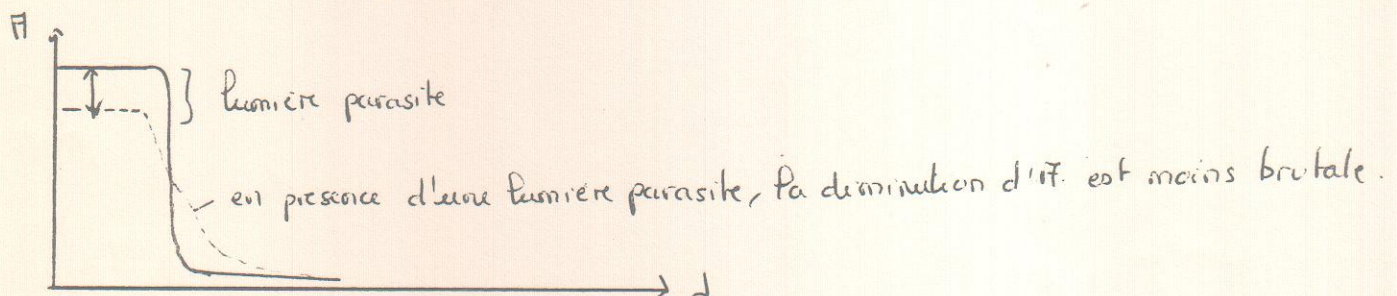 A
lumière parasite
en présence d'une lumière parasite, la diminution d'A. est moins brutale.